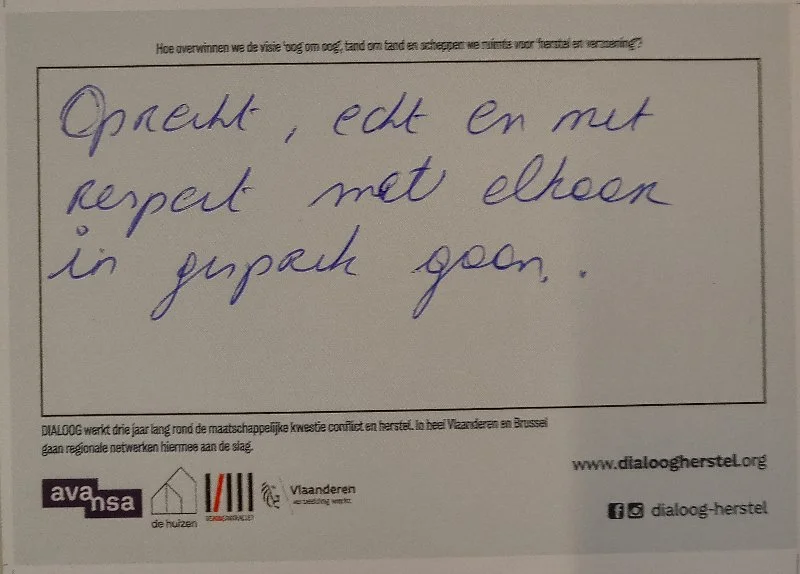 Hoe overwinnen we de visie 'oog om oog', tand om tand en scheppen we ruimte voor 'herstel en verzoening'?
Oprecht, echt en met
respect met elkaar
in gesprek gaan.
DIALOOG werkt drie jaar lang rond de maatschappelijke kwestie conflict en herstel. In heel Vlaanderen en Brussel
gaan regionale netwerken hiermee aan de slag.
www.dialoogherstel.org
avansa
de huizen
Vlaanderen
verbeelding werkt
dialoog-herstel